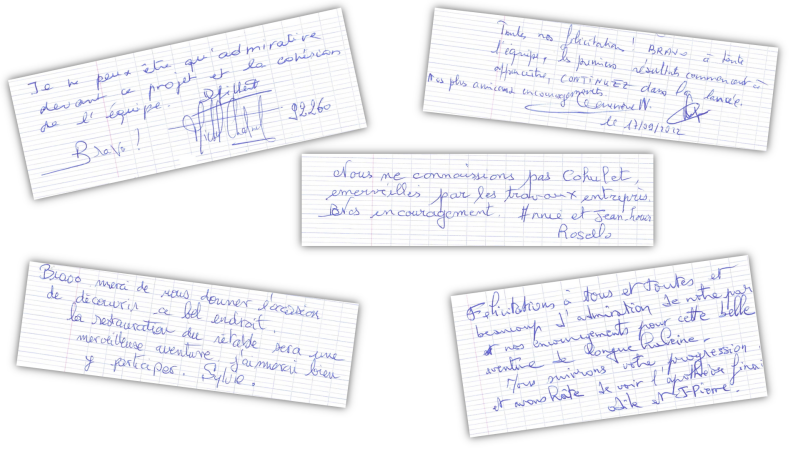 Je ne peux être qu'admirative
devant ce projet et la cohésion
de l'équipe.
Bravo !
92260
Toutes nos félicitations ! BRAVO à toute
l'équipe, les premiers résultats commencent à
apparaître, CONTINUEZ dans la lancée.
Nos plus amicaux encouragements.
le 17/09/2012
Nous ne connaissions pas Cohulet,
émerveillés par les travaux entrepris.
Nos encouragement. Annie et Jean-Louis
Rosello
Bravo merci de nous donner l'occasion
de découvrir ce bel endroit.
la restauration du retable sera une
merveilleuse aventure j'aimerai bien
y participer. Sylvie.
Félicitations à tous et toutes et
beaucoup d'admiration de notre part
et nos encouragements pour cette belle
aventure de longue haleine.
Nous suivrons votre progression
et avons hâte de voir l'apothéose final
Odile et J-Pierre.